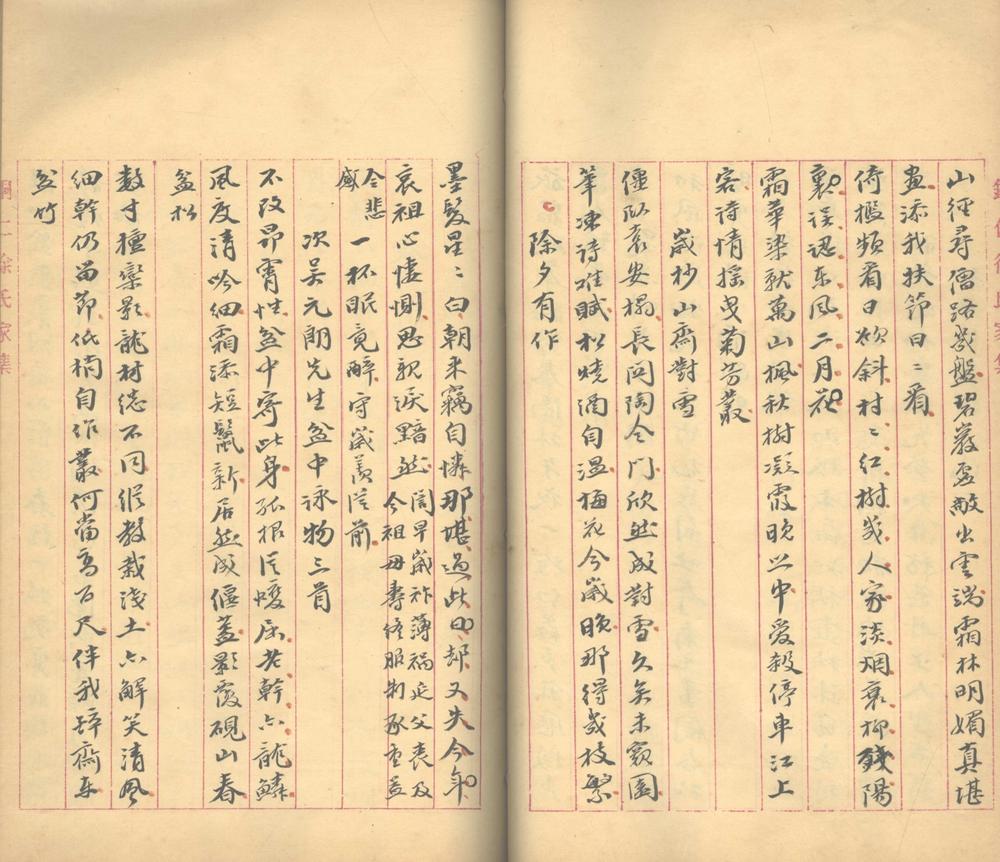 山徑尋僧路幾盤碧巖盡敞出雲端霜林明媚真堪
畫添我扶筇日〻看
倚檻頻看日欲斜村〻紅樹幾人家淡烟衰柳殘陽
裏誤認東風二月花
霜華染就萬山楓秋樹凝霞晚照中愛殺停車江上
客詩情搖曳菊芳叢
歲杪山齋對雪
僵臥袁安榻長閉陶令門欣然成對雪久矣未窺園
筆凍詩難賦松燒酒自溫梅花今歲晚那得幾枝繁
除夕有作
墨髮星〻白朝來竊自憐那堪過此日却又失今年
哀祖心悽惻思親淚黯然
闇早歲祚薄禍延父喪及
今祖母壽終服制承重益
令悲
感
一杯眠竟醉守歲羨從前
次吳元朗先生盆中詠物三首
不改昂霄性盆中寄此身孤根從蠖屈老幹亦龍鱗
風度清吟細霜添短鬣新居然成偃蓋影覆硯山春
盆松
數寸檀欒影龍材總不同縱教栽淺土亦解笑清風
細幹仍留節低梢自作叢何當高百尺伴我碎齋東
盆竹
桐
徐氏家集